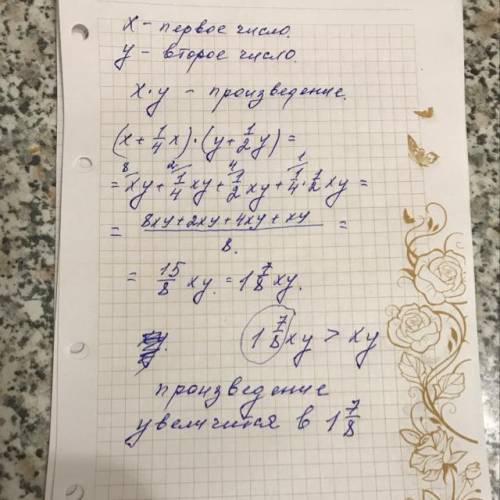 x - первое число.
y - второе число.
x·y - произведение.
(x+1/4x)·(y+1/2y)=
=xy+1/4xy+1/2xy+1/4·1/2xy=
8 2 4 1
= (8xy+2xy+4xy+xy)/8. =
= 15/8 xy = 1 7/8 xy.
1 7/8 xy > xy
произведение
увеличится в 1 7/8